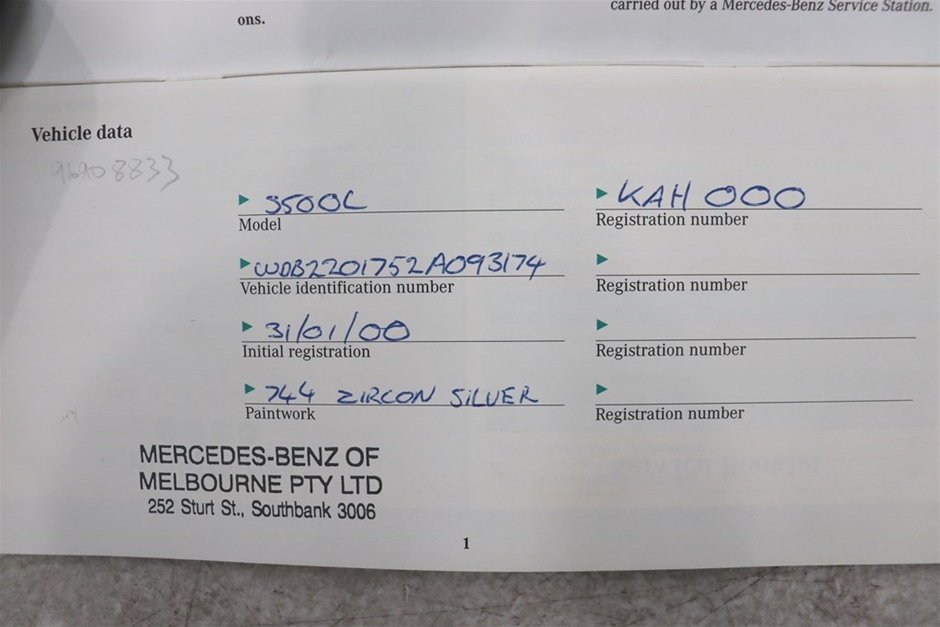 ons.
carried out by a Mercedes-Benz Service Station.
Vehicle data
96908833
S500L
Model
KAH 000
Registration number
WDB2201752A093174
Vehicle identification number
Registration number
31/01/00
Initial registration
Registration number
744 ZIRCON SILVER
Paintwork
Registration number
MERCEDES-BENZ OF
MELBOURNE PTY LTD
252 Sturt St., Southbank 3006
1